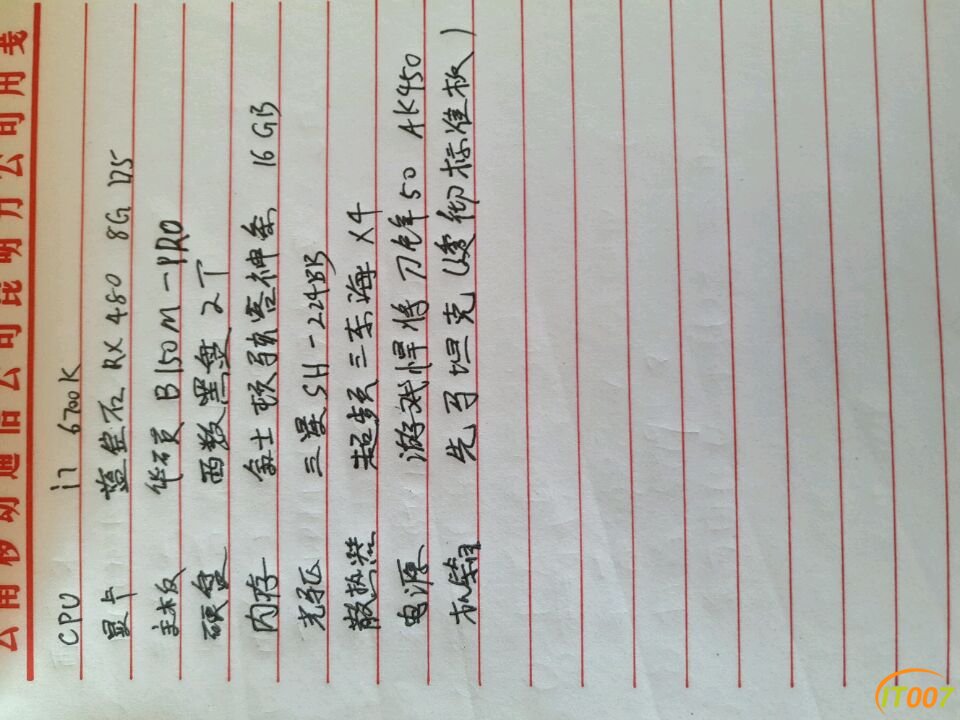 云南移动通信公司昆明分公司用笺
CPU i7 6700K
显卡 蓝宝石 RX 480 8G 125
主板 华硕 B150M-PRO
硬盘 西数黑盘 2T
内存 金士顿骇客神条 16GB
光驱 三星 SH-224BB
散热器 超频三东海 X4
电源 游戏悍将刀锋50 AK450
机箱 先马坦克(透彻标准板)
IT007